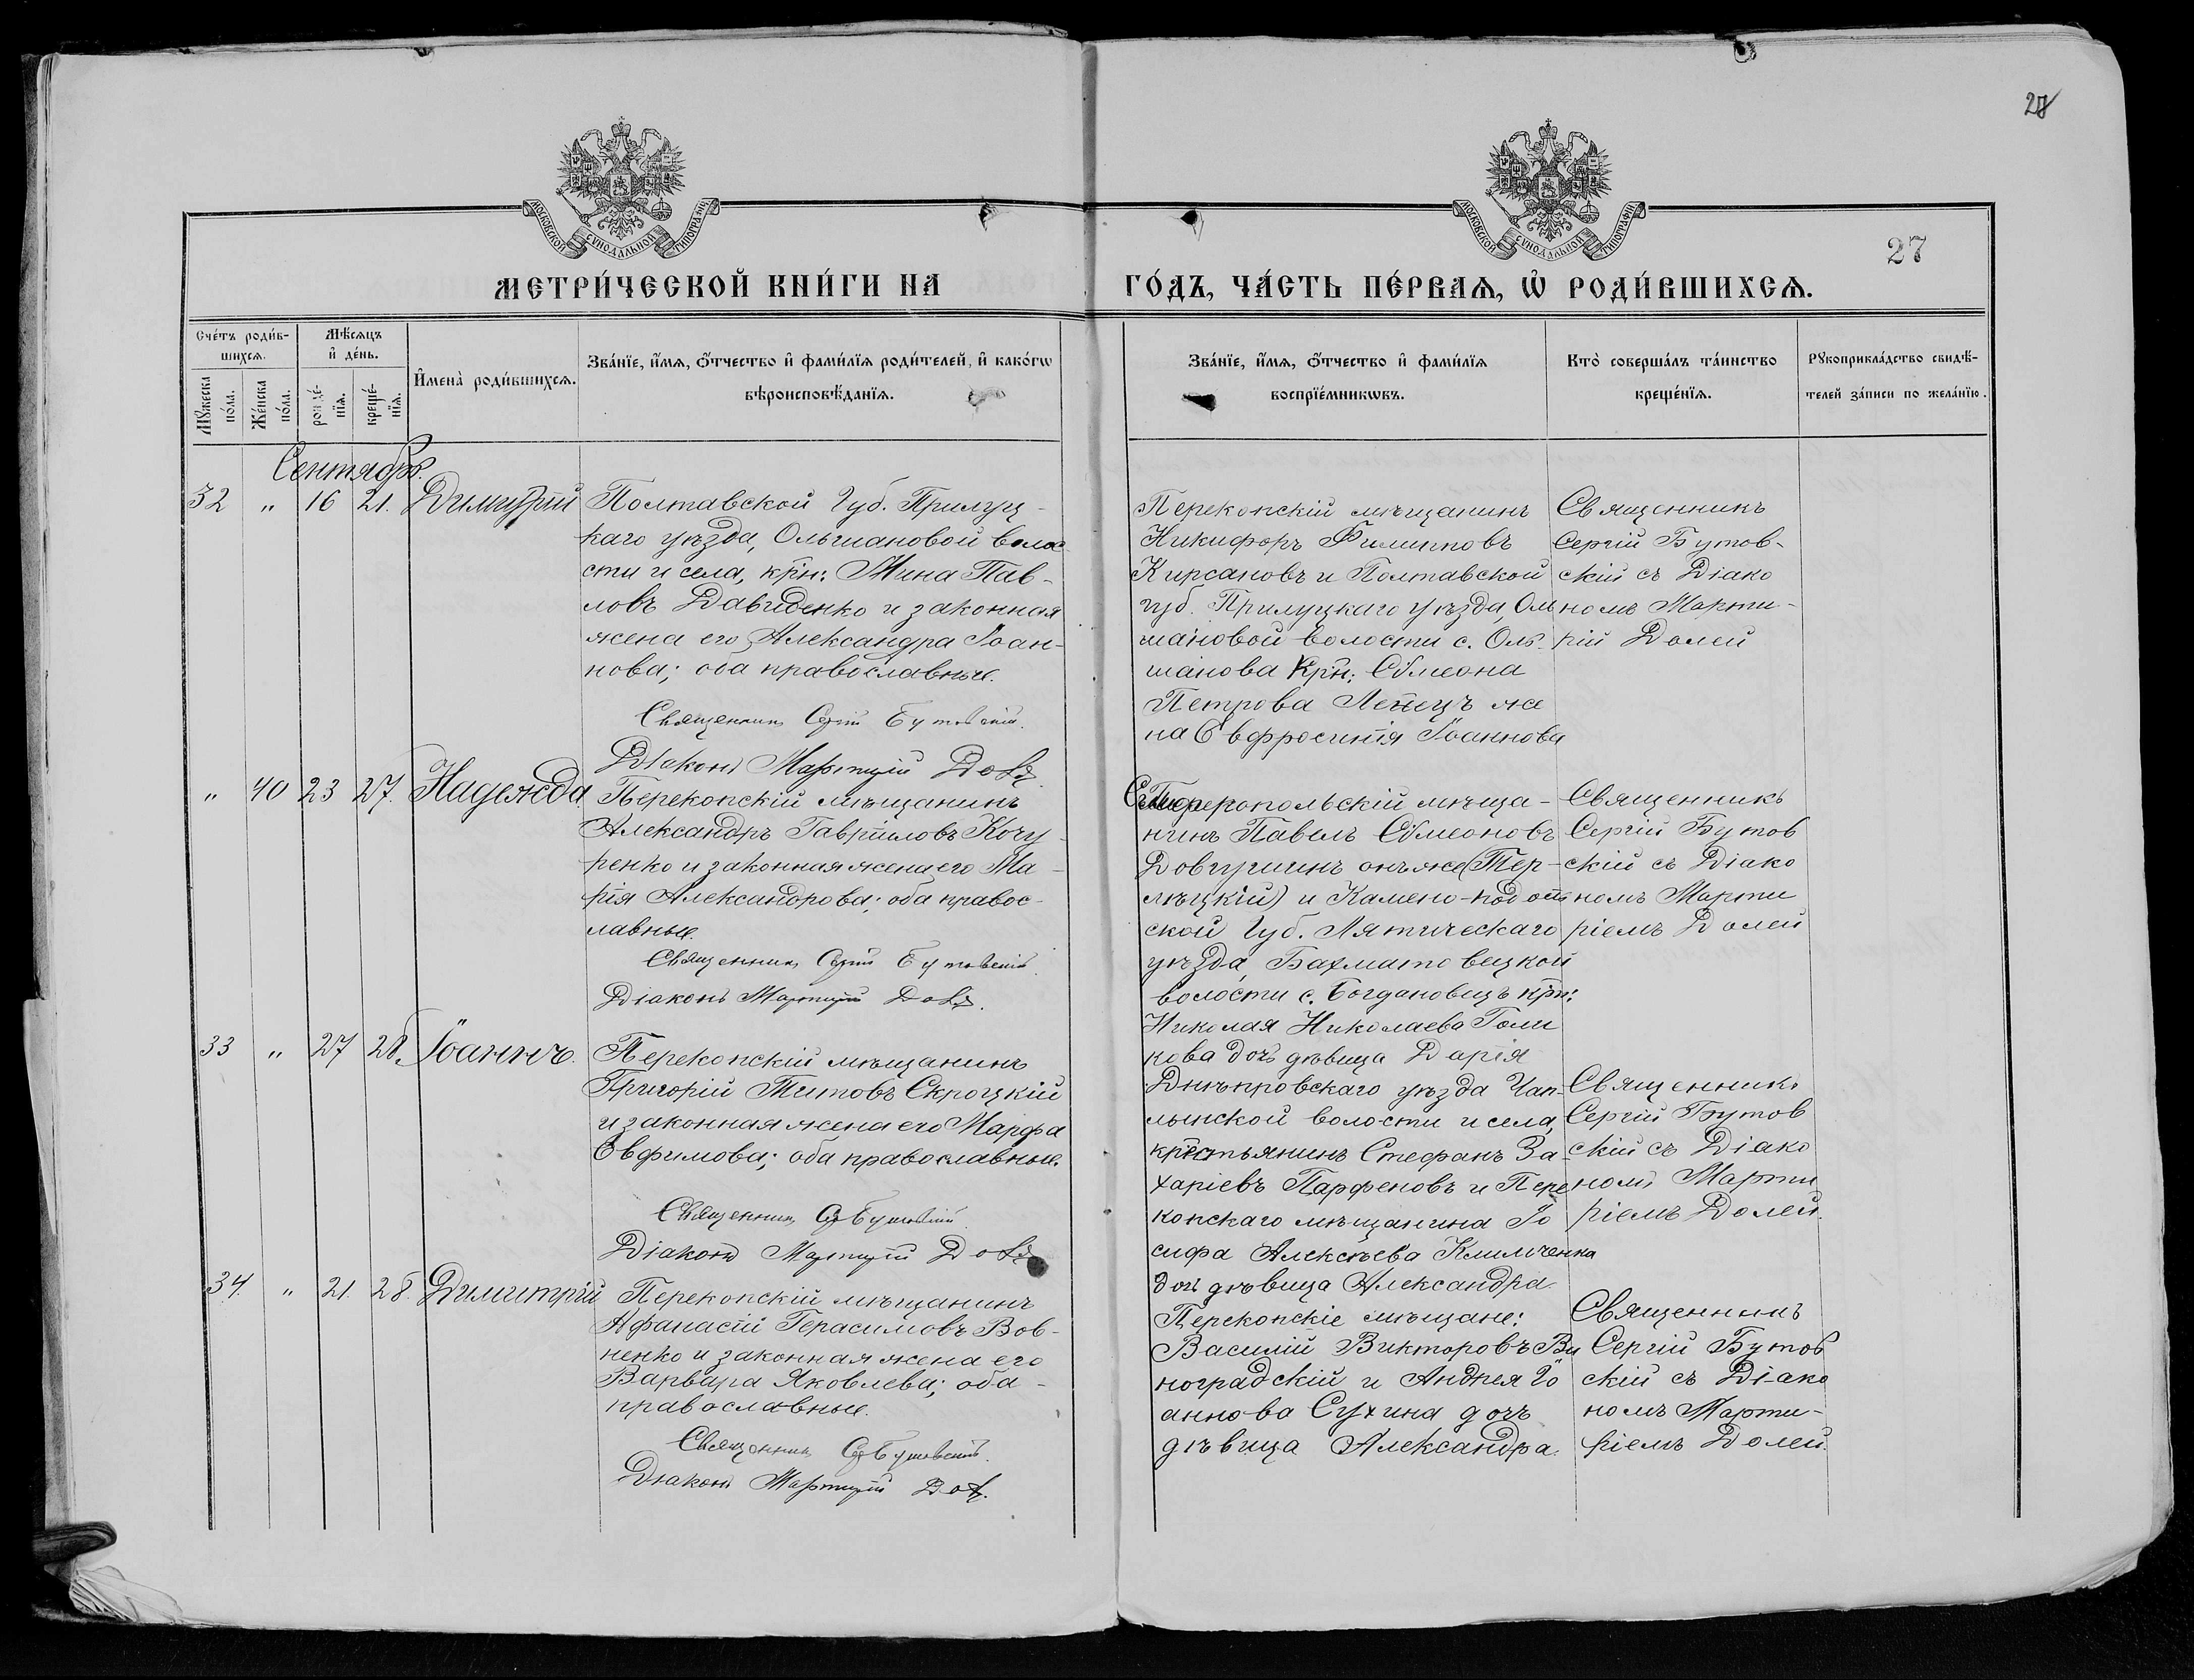 28
МОСКОВСКОЙ СУНОДАЛЬНОЙ ТИПОГРАФІИ
МОСКОВСКОЙ СУНОДАЛЬНОЙ ТИПОГРАФІИ
27
МЕТРИ́ЧЕСКОЙ КНИ́ГИ НА
ГО́ДЪ, ЧА́СТЬ ПЕ́РВАѦ, Ѡ҆ РОДИ́ВШИХСѦ.
Сче́тъ роди́в-
шихсѧ.
Мѣ́сѧцъ
и҆ де́нь.
Мꙋ́жеска
по́ла.
Же́нска
по́ла.
рожде́-
нїѧ.
креще́-
нїѧ.
И҆мена̀ роди́вшихсѧ.
Зва́нїе, и҆́мѧ, ѻ҆́тчество и҆ фами́лїѧ роди́телей, и҆ како́гѡ
вѣроисповѣ́данїѧ.
Зва́нїе, и҆́мѧ, ѻ҆́тчество и҆ фами́лїѧ
воспрїе́мникѡвъ.
Кто̀ соверша́лъ та́инство
креще́нїѧ.
Рꙋкоприкла́дство свидѣ́-
телей за́писи по жела́нїю.
Сентябрь.
32 " 16 21. Димитрій
Полтавской Губ. Прилуц-
каго уѣзда, Ольшановой волос
сти и села, крн: Мина Пав-
ловъ Давиденко и законная
жена его Александра Іоан-
нова; оба православные.
Священникъ Сергій Бутовскій.
Діаконъ Мартирій Долей
Перекопскій мѣщанинъ
Никифоръ Филипповъ
Кирсановъ и Полтавской
губ. Прилуцкаго уѣзда, Оль
шановой волости с. Оль-
шанова Крн: Сѵмеона
Петрова Ленецъ же
на Евфросинія Іоаннова
Священникъ
Сергій Бутов-
скій съ Діако
номъ Марти-
рій Долей
" 40 23 27. Надежда
Перекопскій мѣщанинъ
Александръ Гавріиловъ Кочу-
ренко и законная жена его Ма-
рія Александрова; оба правос-
лавные.
Священникъ Сергій Бутовскій.
Діаконъ Мартирій Долей.
Симферопольскій мѣща-
нинъ Павелъ Сѵмеоновъ
Довгушинъ онъ же (Тер-
лецкій) и Камено-подоль
ской Губ. Лятическаго
уѣзда, Бахматовецкой
волости с. Богдановецъ крн:
Николая Николаева Голи
кова дочь дѣвица Дарія
Священникъ
Сергій Бутов
скій съ Діако
номъ Марти
ріемъ Долей
33 " 27 28. Іоаннъ.
Перекопскій мѣщанинъ
Григорій Титовъ Скроцкій
и законная жена его Марфа
Евфимова; оба православные.
Священникъ С. Бутовскій.
Діаконъ Мартирій Долей
Днѣпровскаго уѣзда Чап-
лынской волости и села,
крестьянинъ Стефанъ За-
харіевъ Парфеновъ и Пере
копскаго мѣщанина Іо
сифа Алексѣева Климченка
дочь дѣвица Александра.
Священникъ
Сергій Бутов
скій съ Діако
номъ Марти
ріемъ Долей.
34. " 21. 28. Димитрій
Перекопскій мѣщанинъ
Афанасій Герасимовъ Вов-
ненко и законная жена его
Варвара Яковлева; оба-
православные.
Священникъ С. Бутовскій.
Діаконъ Мартирій Дол.
Перекопскіе мѣщане:
Василій Викторовъ Ви
ноградскій и Андрея Іо
аннова Сухина дочь
дѣвица Александра.
Священникъ
Сергій Бутов
скій съ Діако
номъ Марти-
ріемъ Долей.